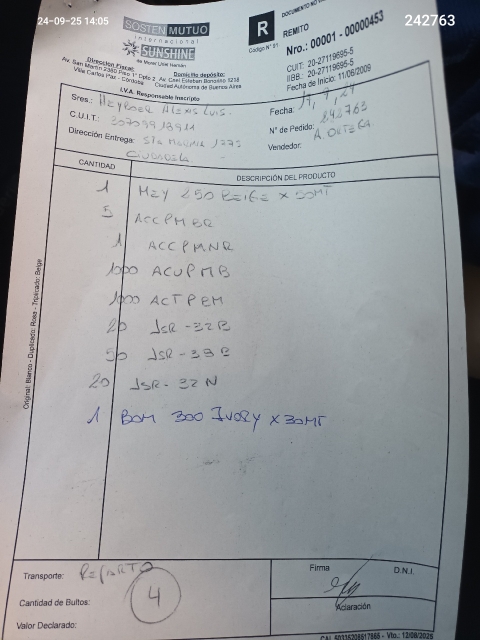 24-09-25 14:05
242763
SOSTEN MUTUO
internacional
SUNSHINE
de Moron Uliel Hernán
R
Código N° 91
DOCUMENTO NO
REMITO
Nro.: 00001 - 00000453
CUIT: 20-27119695-5
IIBB.: 20-27119695-5
Fecha de Inicio: 11/06/2009
Dirección Fiscal:
Av. San Martín 2360 Piso 1° Dpto 2
Villa Carlos Paz - Córdoba
Domicilio depósito:
Av. Cnel Esteban Bonorino 1238
Ciudad Autónoma de Buenos Aires
I.V.A. Responsable Inscripto
Sres.: HEYBOER ALEXIS LUIS.
Fecha:
C.U.I.T.: 30709918911
N° de Pedido: 242763
Dirección Entrega: STA MARIA 1275
Vendedor: A. ORTEGA
CIUDADELA
CANTIDAD DESCRIPCIÓN DEL PRODUCTO
1 MEY 250 BEIGE X 50MT
5 ACCPMBR
1 ACCPMNR
1000 ACUPMB
1000 ACTPEM
20 JSR-32B
50 JSR-38B
20 JSR-32N
1 BOM 300 IVORY X 30MT
Original: Blanco - Duplicado: Rosa - Triplicado: Beige
Transporte: REPARTO
Cantidad de Bultos: 4
Valor Declarado:
Firma D.N.I.
Aclaración
CAI. 50336208617868 - Vto.: 12/08/2025